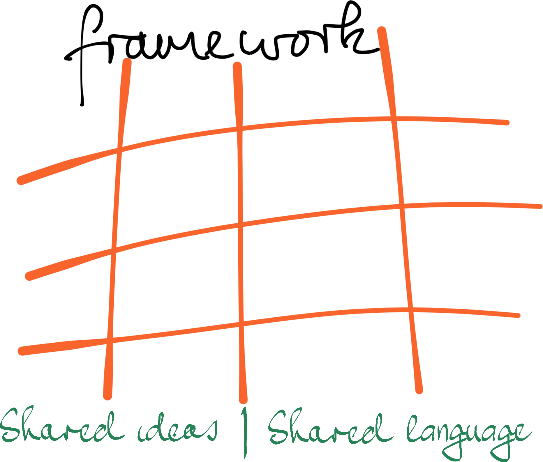 framework
Shared ideas | Shared language